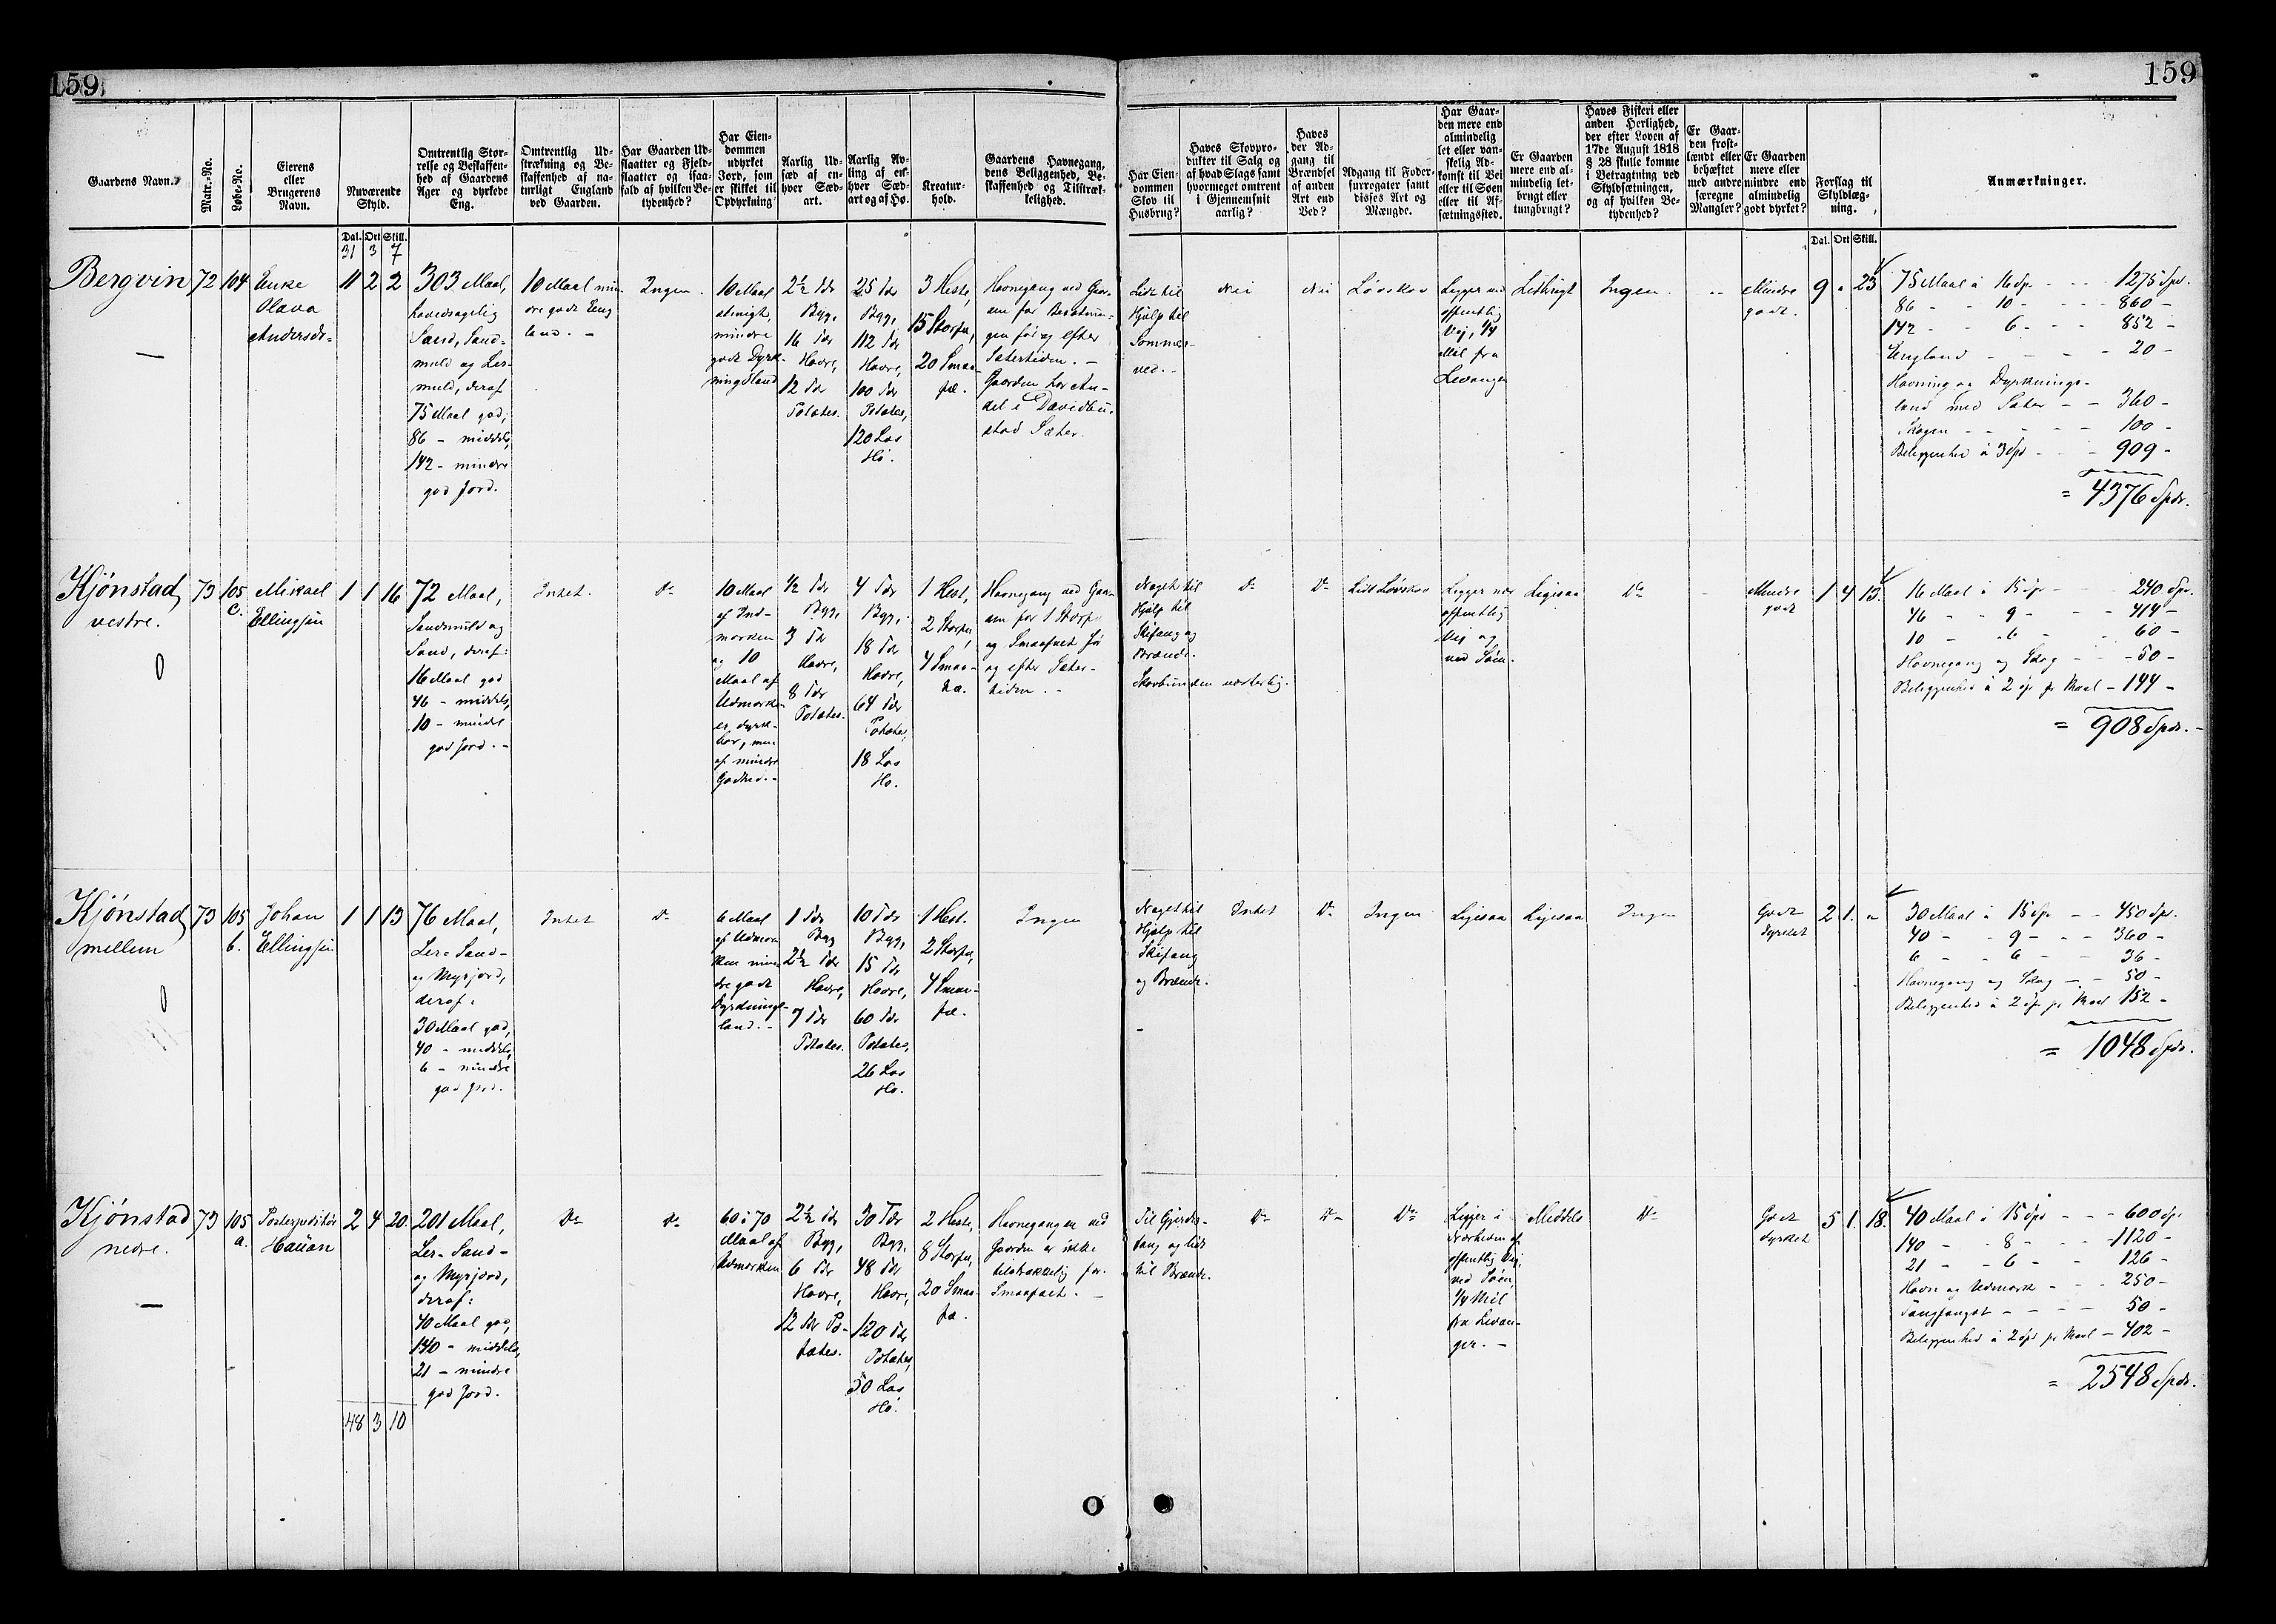 159
159
Gaardens Navn.
Matr.-No.
Løbe-No.
Eierens
eller
Brugerens
Navn.
Nuværende
Skyld.
Omtrentlig Stør-
relse og Beskaffen-
hed af Gaardens
Ager og dyrkede
Eng.
Omtrentlig Ud-
strækning og Be-
skaffenhed af na-
turligt England
ved Gaarden.
Har Gaarden Ud-
slaatter og Fjeld-
slaatter og isaa-
fald af hvilken Be-
tydenhed?
Har Eien-
dommen
udyrket
Jord, som
er skikket til
Opdyrkning
Aarlig Ud-
sæd af en-
hver Sæd-
art.
Aarlig Av-
ling af en-
hver Sæd-
art og af Hø.
Kreatur-
hold.
Gaardens Havnegang,
dens Beliggenhed, Be-
skaffenhed og Tilstræk-
kelighed.
Har Eien-
dommen
Skov til
Husbrug?
Haves Skovpro-
dukter til Salg og
af hvad Slags samt
hvormeget omtrent
i Gjennemsnit
aarlig?
Haves
der Ad-
gang til
Brændsel
af anden
Art end
Ved?
Adgang til Foder-
surrogater samt
disses Art og
Mængde.
Har Gaar-
den mere end
almindelig
let eller van-
skelig Ad-
komst til Vei
eller til Søen
eller til Af-
sætningssted.
Er Gaarden
mere end al-
mindelig let-
brugt eller
tungbrugt?
Haves Fiskeri eller
anden Herlighed,
der efter Loven af
17de August 1818
§ 28 skulle komme
i Betragtning ved
Skyldsætningen,
og af hvilken Be-
tydenhed?
Er Gaar-
den frost-
lændt eller
behæftet
med andre
særegne
Mangler?
Er Gaarden
mere eller
mindre end
almindelig
godt dyrket?
Forslag til
Skyldlæg-
ning.
Anmærkninger.
Dal. Ort Skill.
31 3 7
Dal. Ort Skill.
Bergvin 72 104
Enke
Olava
Andersdr-
11 2 2
303 Maal,
hovedsagelig
Sand, Sand-
muld og Ler-
muld, deraf
75 Maal god,
86 - middels,
142 - mindre
god Jord.
10 Maal min-
dre godt Eng
land. -
Ingen.
10 Maal
mindre
godt Dyrk-
ningsland
2½ Tdr
Byg,
16 Tdr
Havre,
12 Tdr
Potates.
25 Tdr
Byg,
112 Tdr
Havre,
100 Tdr
Potates,
120 Las
Hø.
3 Heste,
15 Storfæ,
20 Smaa-
fæ.
Havnegang ved Gaar-
den for Besætnin-
gen før og efter
Sætertiden. -
Gaarden har An-
del i Davidbu-
stad Sæter.
Lidt til
Hjælp til
Sommer-
ved. -
Nei
Nei
Løvskov
Ligger ved
offentlig
Vej, 1/4
Mil fra
Levanger
Letbrugt
Ingen.
"
Mindre
godt.
9 " 23
75 Maal à 16 Sp. - - - 1275 Spd.
86 - - 10 - - - - 860 -
142 - - 6 - - - 852 -
England - - - - 20 -
Havning og Dyrknings-
land med Sæter - - 360 -
Skogen - - - - 100 -
Beliggenhed à 3 Spd - - - 909 -
= 4376 Spdr.
Kjønstad
vestre.
73 105
c.
Mikael
Ellingsen
1 1 16
72 Maal,
Sandmuld og
Sand, deraf:
16 Maal god
46 - middels,
10 - mindre
god Jord. -
Intet.
Do
10 Maal
af Ind-
marken
og 10
Maal af
Udmarken
er dyrk-
bar, men
af mindre
Godhed. -
1/2 Tdr
Byg,
3 Tdr
Havre,
8 Tdr
Potates.
4 Tdr
Byg,
18 Tdr
Havre,
64 Tdr
Potates,
18 Las
Hø.
1 Hest,
2 Storfæ,
4 Smaa-
fæ.
Havnegang ved Gaar-
den for 1 Storfæ
og Smaafæet før
og efter Sæter-
tiden. -
Noget til
Hjælp til
Skifang og
Brænde.
Skovbunden væsterlig.
Do
Do
Lidt Løvskov
Ligger ved
offentlig
Vej og
ved Søen.
Ligesaa
Do
Mindre
godt
1 4 13.
16 Maal à 15 Sp - - - 240 Spd.
46 - - 9 - - - 414 -
10 - - 6 - - 60 -
Havnegang og Skog - - 50 -
Beliggenhed à 2 Sp pr Maal - 144 -
= 908 Spdr. -
Kjønstad
mellem
73 105
b.
Johan
Ellingsen
1 1 13
76 Maal,
Ler- Sand-
og Myrjord,
deraf:
30 Maal god,
40 - middels,
6 - mindre
god Jord.
Intet
Do
6 Maal
af Udmar-
ken min-
dre godt
Dyrknings-
land. -
1 Tdr
Byg
2½ Tdr
Havre,
7 Tdr
Potates.
10 Tdr
Byg,
15 Tdr
Havre,
60 Tdr
Potates,
26 Las
Hø.
1 Hest.
2 Storfæ,
4 Smaa-
fæ.
Ingen
Noget til
Hjælp til
Skifang
og Brænde.
Intet
Do
Ingen
Ligesaa
Ligesaa
Ingen
Godt
dyrket
2 1. "
30 Maal à 15 Sp - - 450 Spd.
40 - - 9 - - - 360 -
6 - - 6 - - 36 -
Havnegang og Skog - - 50 -
Beliggenhed à 2 Sp pr Maal 152 -
= 1048 Spdr.
Kjønstad
nedre.
73 105
a.
Postexpeditør
Hauan
2 4 20.
201 Maal,
Ler- Sand-
og Myrjord,
deraf:
40 Maal god,
140 - middels,
21 - mindre
god Jord.
Do
Do
60 à 70
Maal af
Udmarken
2½ Tdr
Byg,
6 Tdr
Havre,
12 Tdr Po-
tates.
30 Tdr
Byg,
48 Tdr
Havre,
120 Tdr
Potates,
50 Las
Hø.
2 Heste,
8 Storfæ,
20 Smaa-
fæ.
Havnegangen ved
Gaarden er ikke
tilstrækkelig for
Smaafæet. -
Til Gjerdes-
fang og lidt
til Brænde.
Do
Do
Do
Ligger i
Nærheden af
offentlig Vej,
ved Søen
1/4 Mil
fra Levan-
ger. -
Middels
Do
Godt
dyrket
5 1. 18.
40 Maal à 15 Spd - - - 600 Spd
140 - - 8 - - - 1120 -
21 - - 6 - - 126 -
Havn og Udmark - - - 250 -
Tangfangst - - - - 50 -
Beliggenhed à 2 Spd pr Maal - 402 -
= 2548 Spdr.
48 3 10